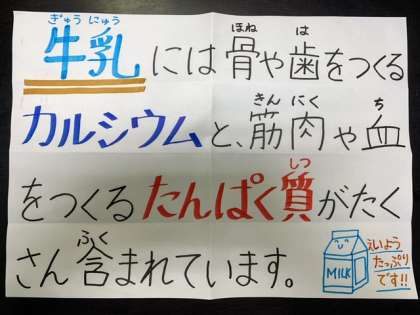 ぎゅうにゅう
牛乳には骨や歯をつくる
ほね は
カルシウムと、筋肉や血
きん にく ち
をつくるたんぱく質がたく
しつ
さん含まれています。
ふく
MILK
えいよう
たっぷり
です!!